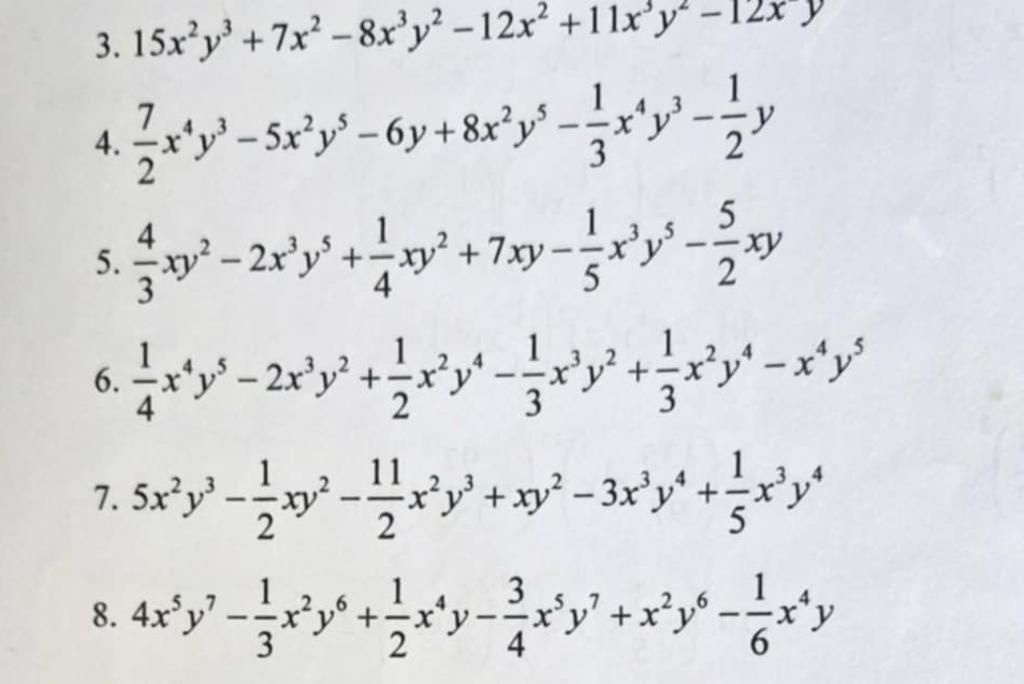 3. 15x²y³ + 7x² – 8x³y² – 12x² + 11x³y² – 12x
4. 7/2 x⁴y³ – 5x²y⁵ – 6y + 8x²y⁵ – 1/3 x⁴y³ – 1/2 y
5. 4/3 xy² – 2x³y⁵ + 1/4 xy² + 7xy – 1/5 x³y⁵ – 5/2 xy
6. 1/4 x⁴y⁵ – 2x³y² + 1/2 x²y⁴ – 1/3 x³y² + 1/3 x²y⁴ – x⁴y⁵
7. 5x²y³ – 1/2 xy² – 11/2 x²y³ + xy² – 3x³y⁴ + 1/5 x³y⁴
8. 4x⁵y⁷ – 1/3 x²y⁶ + 1/2 x⁴y – 3/4 x⁵y⁷ + x²y⁶ – 1/6 x⁴y